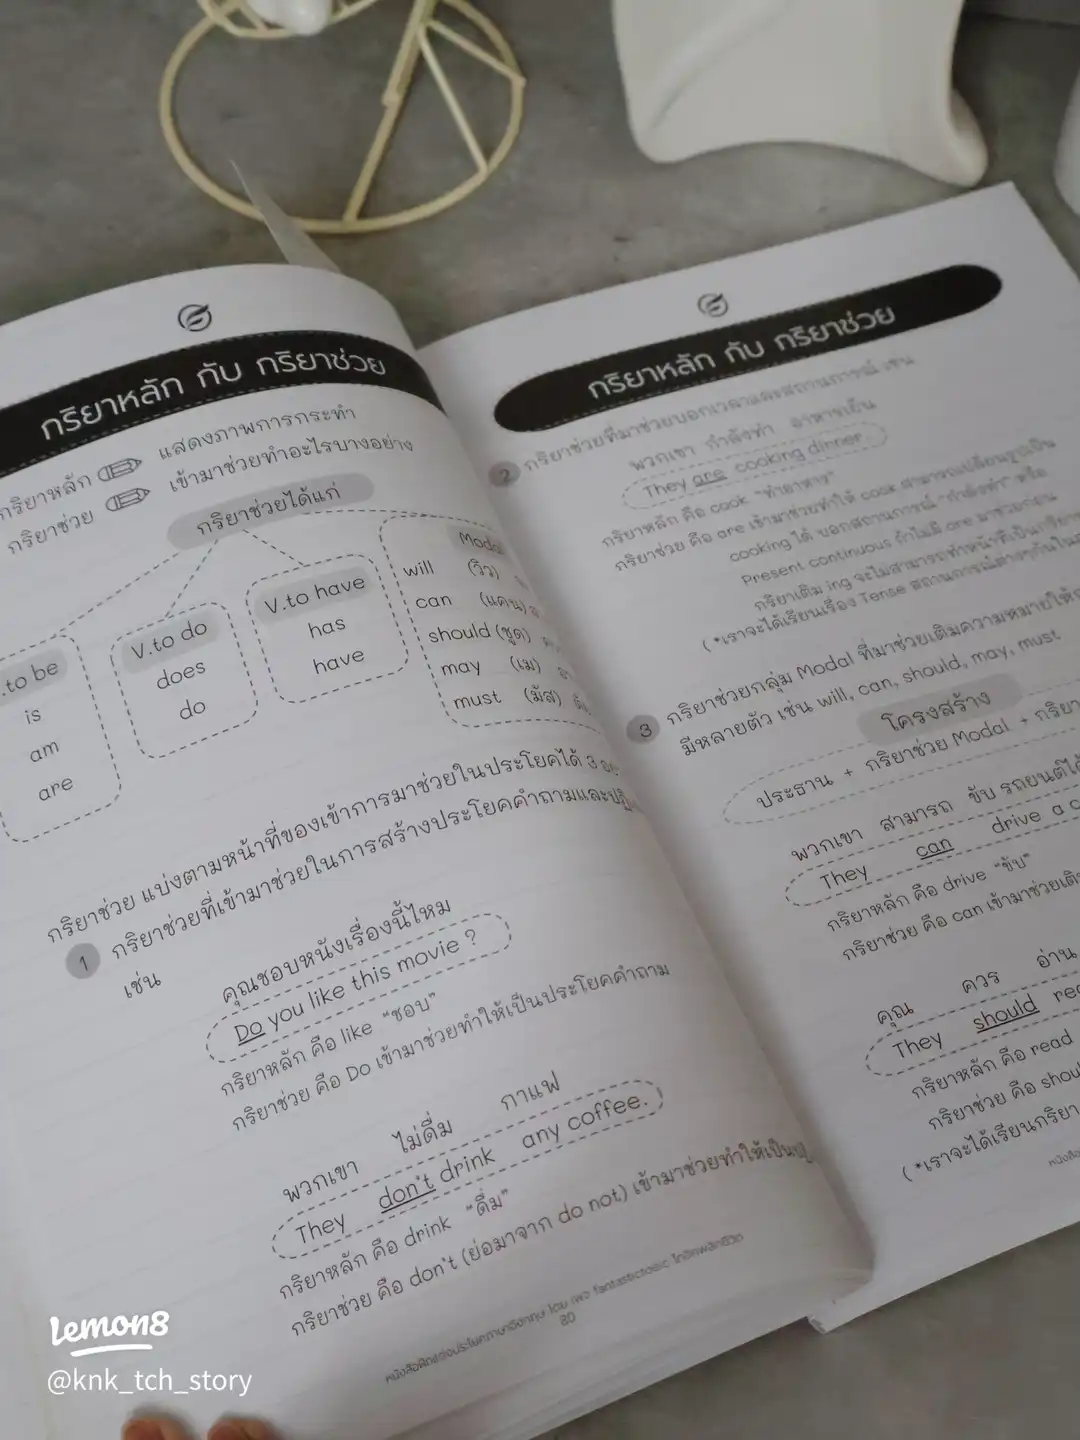 กริยาหลัก กับ กริยาช่วย
กริยาหลัก แสดงภาพการกระทำ
กริยาช่วย เข้ามาช่วยทำอะไรบางอย่าง
กริยาช่วยได้แก่
.to be
is
am
are
V.to do
does
do
V.to have
has
have
Modal
will (วิว)
can (แคน)
should (ชูด)
may (เม)
must (มัส)
กริยาช่วย แบ่งตามหน้าที่ของเข้าการมาช่วยในประโยคได้ 3
1 กริยาช่วยที่เข้ามาช่วยในการสร้างประโยคคำถามและ
เช่น
คุณชอบหนังเรื่องนี้ไหม
Do you like this movie ?
กริยาหลัก คือ like “ชอบ”
กริยาช่วย คือ Do เข้ามาช่วยทำให้เป็นประโยคคำถาม
พวกเขา ไม่ดื่ม กาแฟ
They don't drink any coffee.
กริยาหลัก คือ drink “ดื่ม”
กริยาช่วย คือ don't (ย่อมาจาก do not) เข้ามาช่วยทำให้เป็น
80
กริยาหลัก กับ กริยาช่วย
2 กริยาช่วยที่มาช่วยบอกเวลาและสถานการณ์ เช่น
พวกเขา กำลังทำ อาหารเย็น
They are cooking dinner.
กริยาหลัก คือ cook “ทำอาหาร”
กริยาช่วย คือ are เข้ามาช่วยทำให้ cook สามารถเปลี่ยนรูปเป็น
cooking ได้ บอกสถานการณ์ “กำลังทำ” หรือ
Present continuous ถ้าไม่มี are มาช่วยก่อน
กริยาเติม ing จะไม่สามารถทำหน้าที่เป็นกริยา
(*เราจะได้เรียนเรื่อง Tense สถานการณ์ต่างๆกันใน
3 กริยาช่วยกลุ่ม Modal ที่มาช่วยเติมความหมายให้
มีหลายตัว เช่น will, can, should, may, must
โครงสร้าง
ประธาน + กริยาช่วย Modal + กริยา
พวกเขา สามารถ ขับ รถยนต์ได้
They can drive a
กริยาหลัก คือ drive “ขับ”
กริยาช่วย คือ can เข้ามาช่วยเติ
คุณ ควร อ่าน
They should
กริยาหลัก คือ read
กริยาช่วย คือ
(*เราจะได้เรียนกริยา
Lemon8
@knk_tch_story